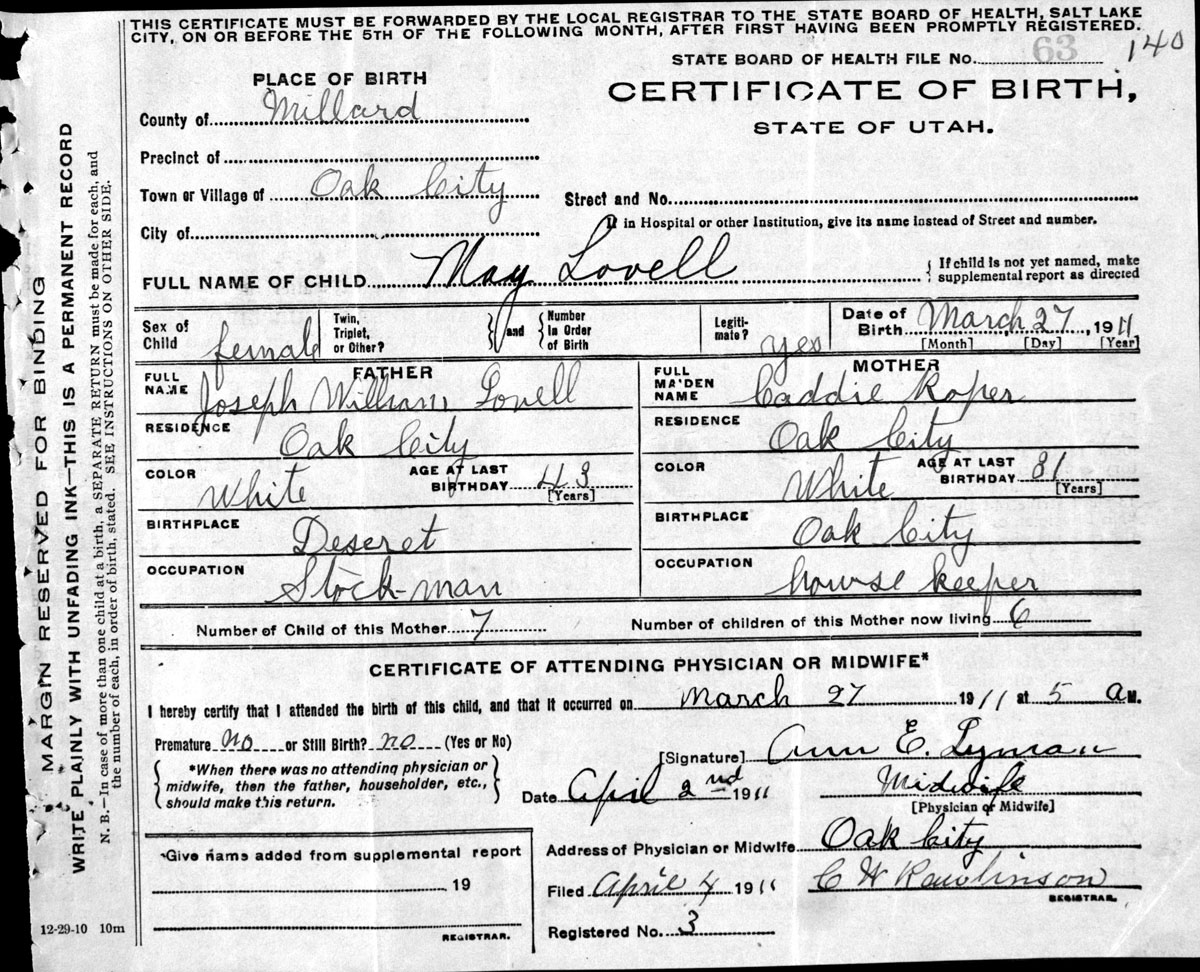 THIS CERTIFICATE MUST BE FORWARDED BY THE LOCAL REGISTRAR TO THE STATE BOARD OF HEALTH, SALT LAKE
CITY, ON OR BEFORE THE 5TH OF THE FOLLOWING MONTH, AFTER FIRST HAVING BEEN PROMPTLY REGISTERED.
140
STATE BOARD OF HEALTH FILE No. 63
PLACE OF BIRTH
CERTIFICATE OF BIRTH,
STATE OF UTAH.
County of Millard
Precinct of
Town or Village of Oak City
Street and No.
If in Hospital or other Institution, give its name instead of Street and number.
City of
FULL NAME OF CHILD May Lovell
{ If child is not yet named, make
supplemental report as directed
Sex of
Child female
Twin,
Triplet,
or Other?
} and {
Number
In Order
of Birth
Legiti-
mate? yes
Date of
Birth March 27, 1911
[Month] [Day] [Year]
FATHER
FULL
NAME Joseph William Lovell
RESIDENCE Oak City
COLOR White
AGE AT LAST
BIRTHDAY 43
[Years]
BIRTHPLACE Deseret
OCCUPATION Stock-man
MOTHER
FULL
MA'DEN
NAME Caddie Roper
RESIDENCE Oak City
COLOR White
AGE AT LAST
BIRTHDAY 31
[Years]
BIRTHPLACE Oak City
OCCUPATION howse keeper
Number of Child of this Mother 7
Number of children of this Mother now living 6
CERTIFICATE OF ATTENDING PHYSICIAN OR MIDWIFE*
I hereby certify that I attended the birth of this child, and that it occurred on March 27 1911 at 5 a M.
Premature No or Still Birth? no (Yes or No)
{ *When there was no attending physician or
midwife, then the father, householder, etc.,
should make this return. }
[Signature] Ann E. Lyman
Date April 2nd 1911
Midwife
[Physician or Midwife]
Address of Physician or Midwife Oak City
Filed April 4 1911
C W Rawlinson
REGISTRAR.
Registered No. 3
*Give name added from supplemental report
19
REGISTRAR.
12-29-10 10m
MARGIN RESERVED FOR BINDING
WRITE PLAINLY WITH UNFADING INK—THIS IS A PERMANENT RECORD
N. B.—In case of more than one child at a birth, a SEPARATE RETURN must be made for each, and
the number of each, in order of birth, stated. SEE INSTRUCTIONS ON OTHER SIDE.